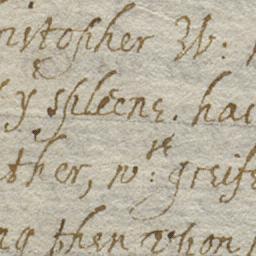 ristopher W:
yᵉ spleene. ha
ther, wᵗʰ: greife
ng then vpon